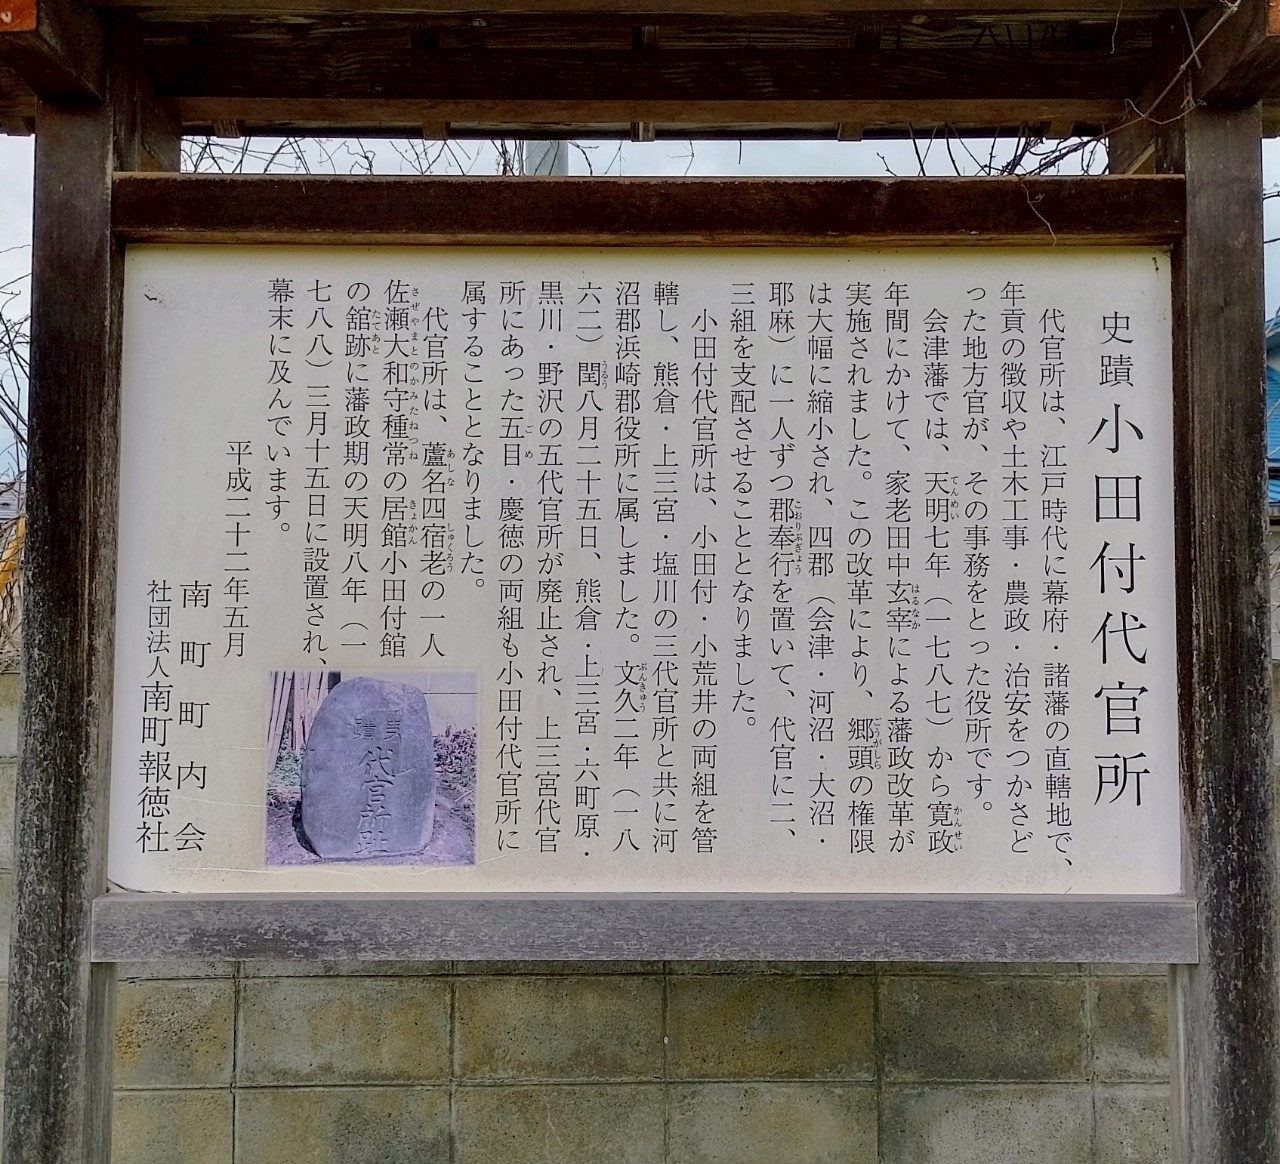 史蹟 小田付代官所
代官所は、江戸時代に幕府・諸藩の直轄地で、
年貢の徴収や土木工事・農政・治安をつかさど
った地方官が、その事務をとった役所です。
会津藩では、天明七年（一七八七）から寛政
年間にかけて、家老田中玄宰による藩政改革が
実施されました。この改革により、郷頭の権限
は大幅に縮小され、四郡（会津・河沼・大沼・
耶麻）に一人ずつ郡奉行を置いて、代官に二、
三組を支配させることとなりました。
小田付代官所は、小田付・小荒井の両組を管
轄し、熊倉・上三宮・塩川の三代官所と共に河
沼郡浜崎郡役所に属しました。文久二年（一八
六二）閏八月二十五日、熊倉・上三宮・六町原・
黒川・野沢の五代官所が廃止され、上三宮代官
所にあった五目・慶徳の両組も小田付代官所に
属することとなりました。
代官所は、蘆名四宿老の一人
佐瀬大和守種常の居館小田付館
の舘跡に藩政期の天明八年（一
七八八）三月十五日に設置され、
幕末に及んでいます。
平成二十二年五月
南町町内会
社団法人南町報徳社
史蹟
代官所趾